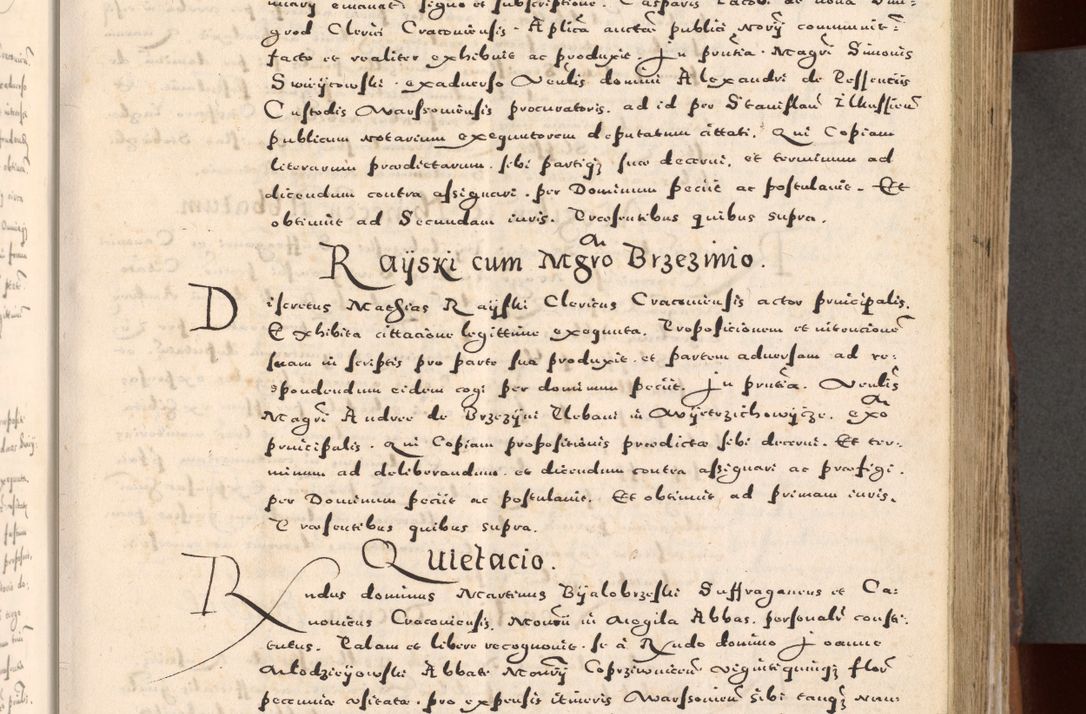 grod Clerici Cracoviensis. Aplica aucte publici Norij communit:
facto et realiter exhibuit ac produxit. In pntia. Magri Simonis
Swiijcowski. exadverso Venlis domini Alexandri de Pessenciis
Custodis Warssoviensis procuratoris. ad id per Stanislau
publicum notarium exequutorem deputatum cittati. Qui Copiam
literarum prædictarum. sibi partiqz suæ decerni. et terminum ad
dicendum contra assignari. per Dominum peciit ac postulavit. Et
obtinuit ad Secundam iuris. Præsentibus quibus supra.
Raijski cum Mgro Brzezinio.
Discretus Mathias Raijski Clericus Cracoviensis actor principalis.
Exhibita cittacione legittime exequuta. Proposicionem et intencione
suam in scriptis pro parte sua produxit. et partem adversam ad re-
spondendum eidem cogi per dominum peciit. In pntia. Venlis
Magri Andree de Brzezijni Plebani in Wijetrzichowijcze. exo
principalis. Qui Copiam propositionis prædictæ sibi decerni. Et ter-
minum ad deliberandum. et dicendum contra assignari ac præfigi.
per Dominum peciit ac postulavit. Et obtinuit ad primam iuris.
Præsentibus quibus supra.
Quietacio.
Rndus dominus Martinus Bijalobrzeski Suffraganeus et Ca-
nonicus Cracoviensis. Monrii in Mogila Abbas. personalr consti-
tutus. Palam et libere recognovit. se à Rndo domino Joanne
Wlodzieijowski Abbate Monrij Coprziwnicen Vigintiquinqz flor
pecuniæ usitatæ. pro expensis itineris Warssovien sibi tanqz